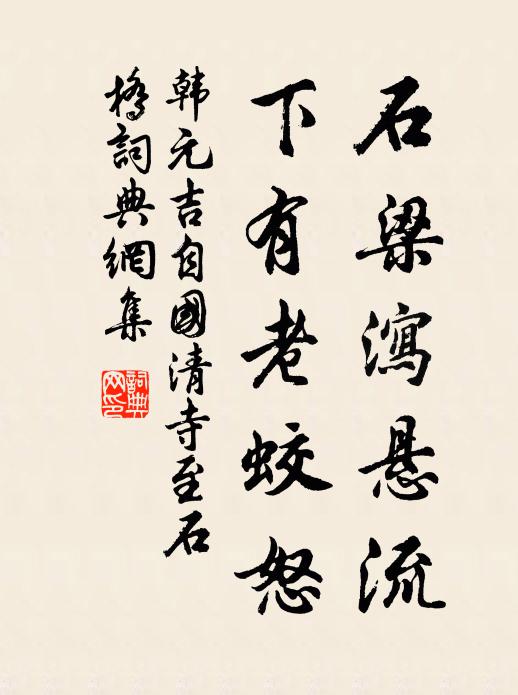 石梁瀉悬流
下有老蛟怒
韩元吉自國清寺至石
橋詞典網集
詞典网印